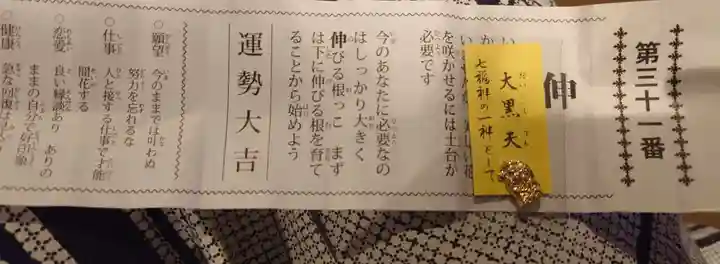 第三十一番
伸
大黒天
七福神の一神として
を咲かせるには土台が
必要です
今のあなたに必要なの
はしっかり大きく
伸びる根っこ まず
は下に伸びる根を育て
ることから始めよう
運勢大吉
○願望 今のままでは叶わぬ
努力を忘れるな
○仕事 人と接する仕事で才能
開花する
○恋愛 良い縁談あり ありの
ままの自分で好印象
○健康